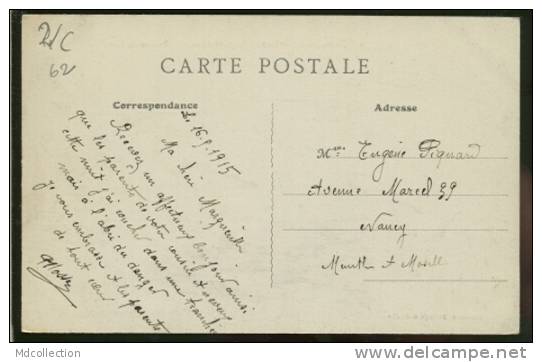 2/C
62
CARTE POSTALE
Correspondance
Adresse
16.9.1915
Ma chère Marguerite
Recevez un affectueux bonjour ainsi
que les parents de votre
cette nuit j'ai couché dans une tranchée
mais à l'abri du danger
Je vous embrasse et les parents
de tout cœur
Eugène Piquard
Avenue Marcel 39
Nancy
Meurthe et Moselle
Mdcollection
http://www.delcampe.net